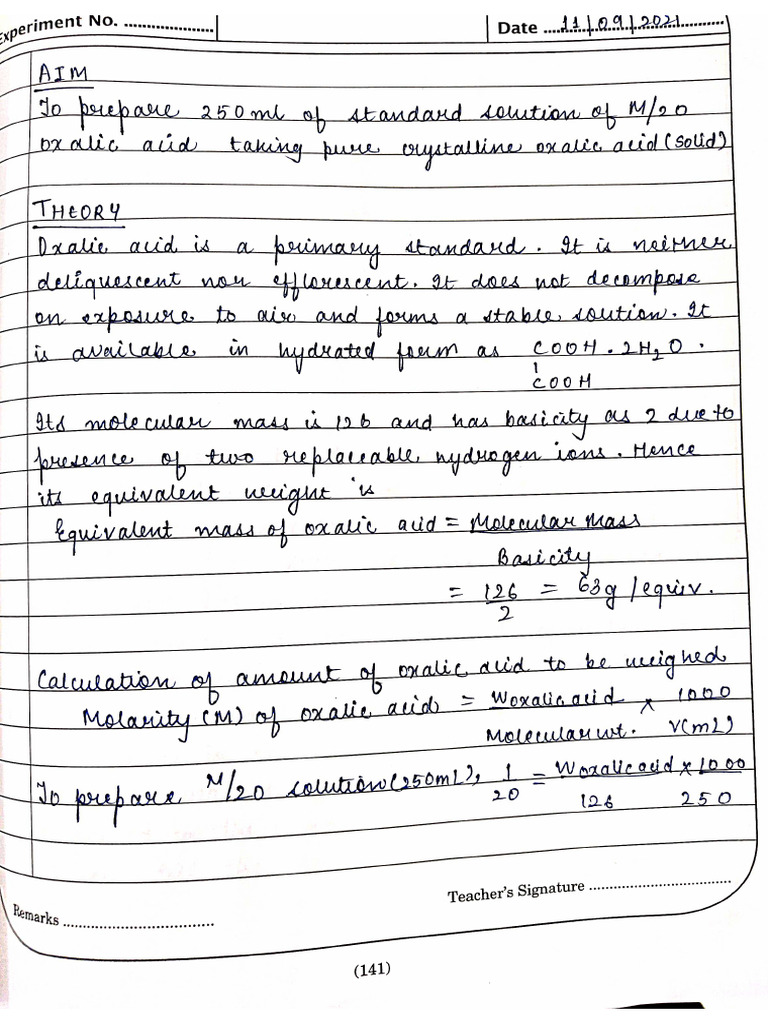 Experiment No. ..................
Date ....11/09/2021...........
AIM
To prepare 250ml of standard solution of M/20
oxalic acid taking pure crystalline oxalic acid (solid)
THEORY
Oxalic acid is a primary standard. It is neither
deliquescent nor efflorescent. It does not decompose
on exposure to air and forms a stable soution. It
is available in hydrated form as COOH . 2H₂O .
|
COOH
Its molecular mass is 126 and has basicity as 2 due to
presence of two replaceable hydrogen ions. Hence
its equivalent weight is
Equivalent mass of oxalic acid = Molecular Mass
Basicity
= 126/2 = 63g /equiv.
Calculation of amount of oxalic acid to be weighed
Molarity (M) of oxalic acid = Woxalic acid × 1000
Molecular wt. V(mL)
To prepare M/20 solution (250mL), 1/20 = Woxalic acid × 1000
126 250
Teacher's Signature ................................
Remarks ..................................
(141)